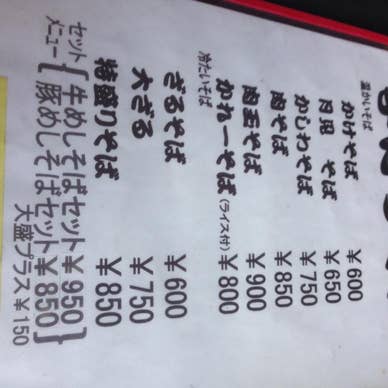 温かいそば
かけそば ¥600
月見そば ¥650
かしわそば ¥750
肉そば ¥850
肉玉そば ¥900
かれーそば(ライス付) ¥800
冷たいそば
ざるそば ¥600
大ざる ¥750
特盛りそば ¥850
セット
メニュー
牛めしそばセット ¥950
豚めしそばセット ¥850
大盛プラス ¥150